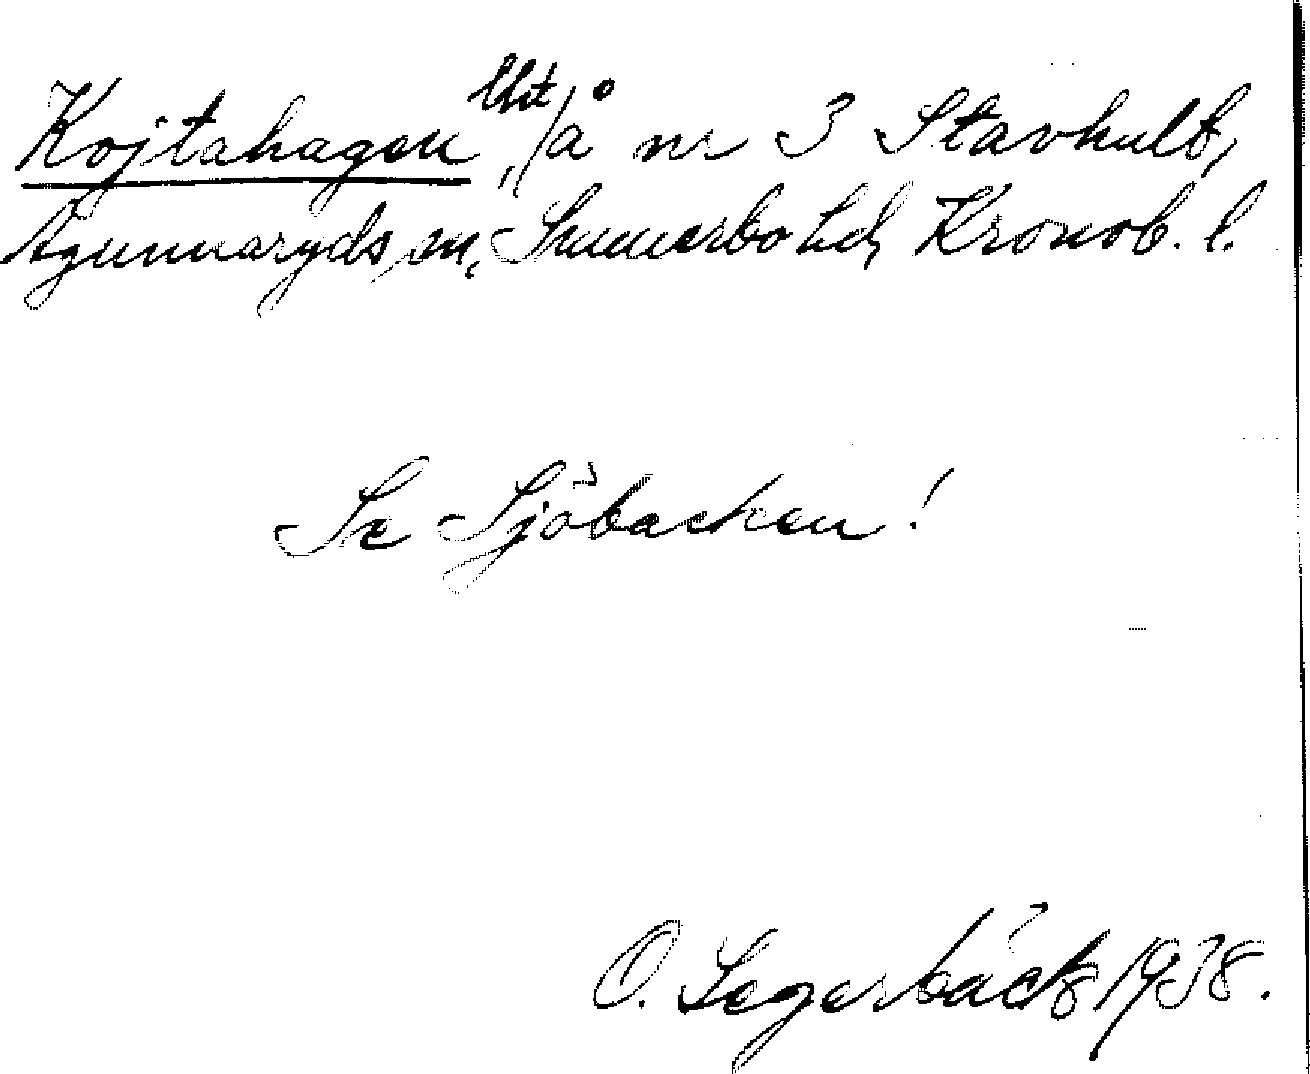 Kojtahagen, lht/å nr 3 Stavhult,
Agunnaryds sn, Sunnerbo hd, Kronob. l.
Se Sjöbacken!
O. Segerbäck 1938.